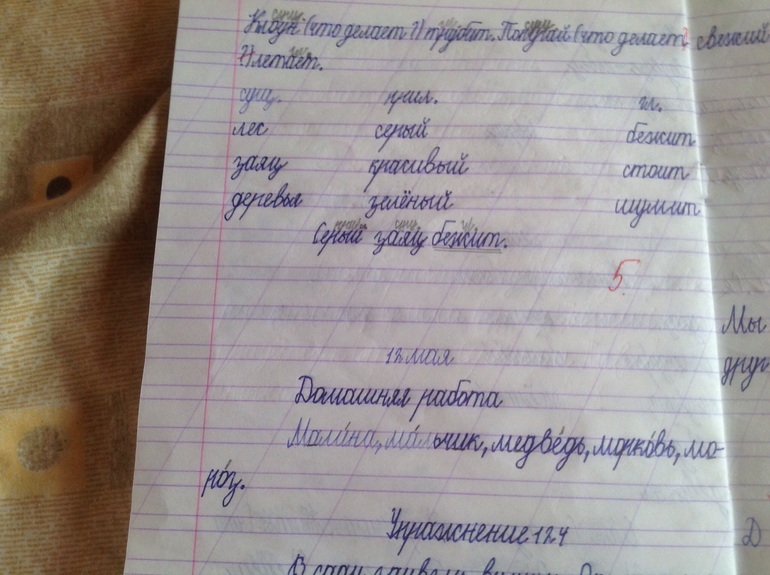 Клоун (что делает?) трубит. Попугай (что делает свежий
?) летает.
сущ. прил. гл.
лес серый бежит
заяц красивый стоит
деревья зелёный шумит
прил. сущ. гл.
Серый заяц бежит.
5.
Мы
12 мая
друг
Домашняя работа
Мали́на, ма́льчик, медве́дь, морко́вь, мо-
ро́з.
Упражнение 124
Д
В саду